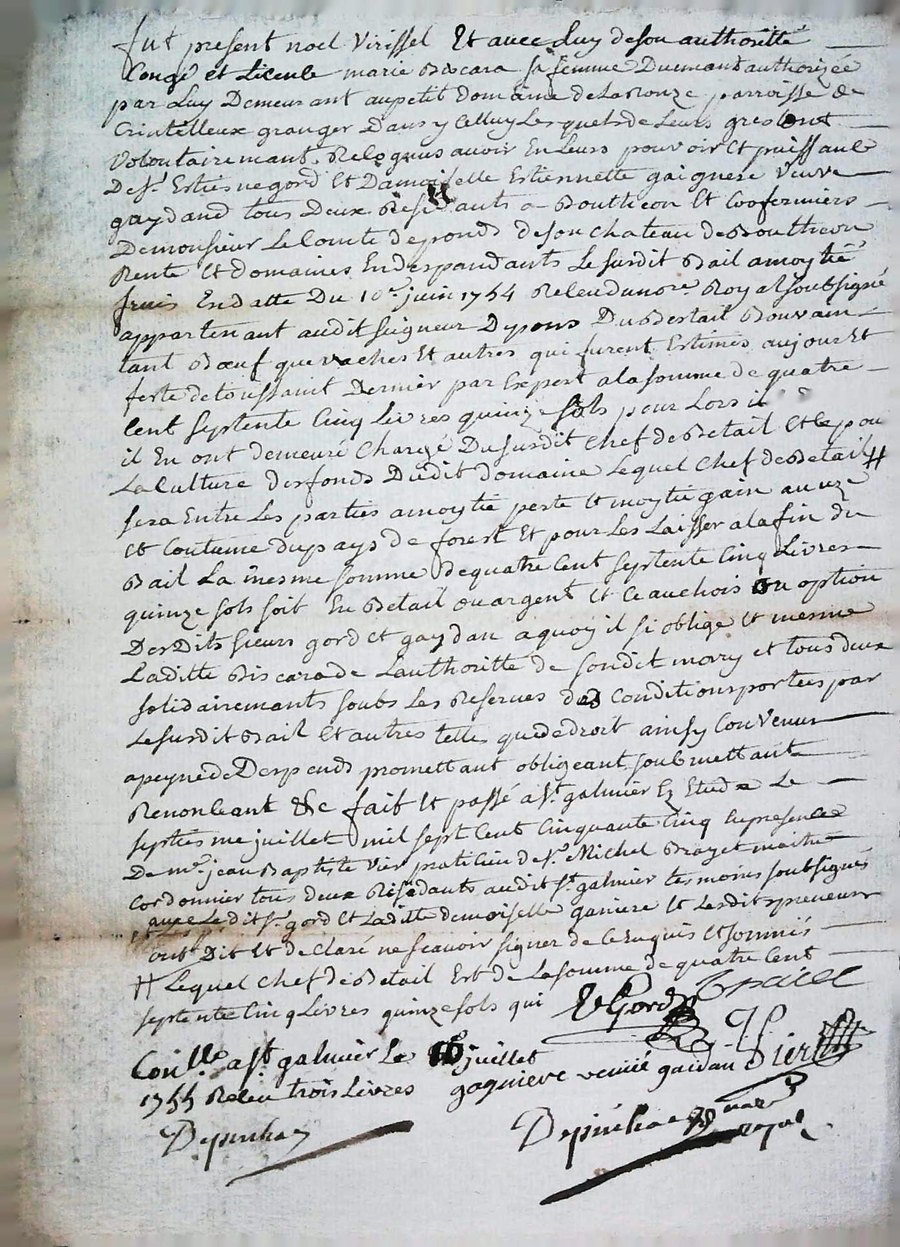 fut present noel Virissel Et avec Luy de son authoritté
Congé et Licence marie Biscara sa femme Duemant authorizée
par Luy Demeurant au petit domaine de Laronze parroisse de
Crintilleux granger Dans ycelluy Lesquels de Leurs gres ont
Volontairemant Relognus avoir En Leurs pouvoir Et puissance
De Sr. Estiesne gord Et Damoiselle Estiennette gaignere veuve
gaydand tous Deux Residants a Boutheon Et Coofermiers
De monsieur Le Comte de ponds de son chateau de Boutheon
Rente Et domaines En despandants Le susdit Bail a moytié
fruis En datte Du 10e. juin 1754 Releu Du nore. Royal soubsigné
appartenant audit seigneur De pons Du Bestail Bouvain
tant Bœuf que vaches Et autres qui furent Estimés aujour Et
feste de toussaint Dernier par Expert a la somme de quatre
Cent septente Cinq Livres quinze sols pour Lors il
il En ont demeuré Chargé Du susdit chef de Betail Et Le pou
La Culture des fonds Dudit Domaine Lequel Chef de Betail #
sera Entre Les parties a moytié perte Et moytié gain au uze
Et Coutume du pays de forest Et pour Les Laisser a la fin du
Bail La mesme somme de quatre Cent septente Cinq Livres
quinze sols soit En Betail ou argent Et Ce au chois ou option
Desdits sieurs gord et gaydan a quoy il si oblige Et mesme
Laditte Biscara de Lauthoritte de sondit mary et tous deux
solidairemants soubs Les Reserves des Conditions portées par
Le susdit Bail Et autres telles que de droit ainsy Convenu
a peyne de Despends promettant obligeant soubmettant
Renonceant &c fait Et passé a St. galmier Ez Etude Le
septiesme juillet mil sept Cent Cinquante Cinq En presence
De mr. jean Baptiste Vier praticien de Sr. Michel Brazet maitre
Cordonnier tous deux Residants audit St. galmier temoins soubsignés
avec Ledit Sr. gord Et Laditte demoiselle ganiere Et Lesdits preneurs
ont Dit Et declaré ne scavoir signer de Ce Enquis Et sommés
# Lequel Chef de Betail Est de La somme de quatre Cent
septente Cinq Livres quinze sols qui
E Gord
Conlle. a St. galmier Le juillet
gagniere veuve gaidan Vier
1755 Releu trois Livres
Depuihaz
Depuihaz nore royal